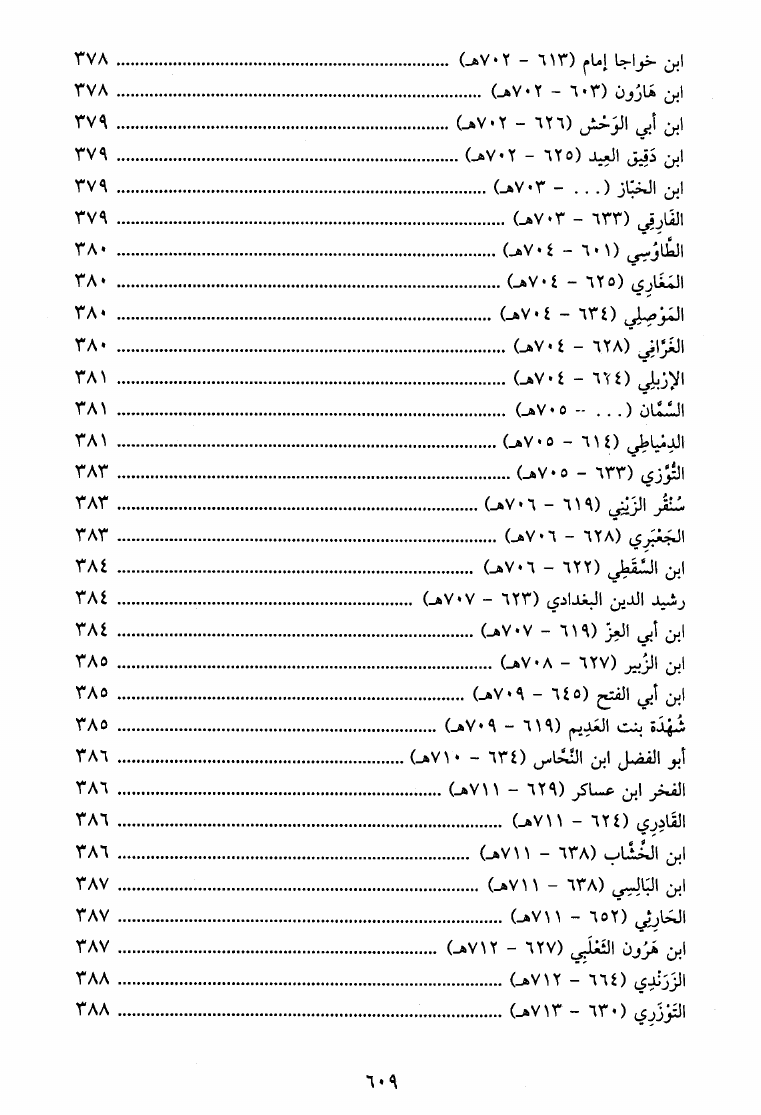 ابن خواجا إمام (٦١٣ - ٧٠٢هـ) ........ ٣٧٨
ابن هَارُون (٦٠٣ - ٧٠٢هـ) ........ ٣٧٨
ابن أبي الوَحْش (٦٢٦ - ٧٠٢هـ) ........ ٣٧٩
ابن دَقِيق العِيد (٦٢٥ - ٧٠٢هـ) ........ ٣٧٩
ابن الخبّاز (... - ٧٠٣هـ) ........ ٣٧٩
الفَارِقِي (٦٣٣ - ٧٠٣هـ) ........ ٣٧٩
الطَّاوُسِي (٦٠١ - ٧٠٤هـ) ........ ٣٨٠
المَغَارِي (٦٢٥ - ٧٠٤هـ) ........ ٣٨٠
المَوْصِلِي (٦٣٤ - ٧٠٤هـ) ........ ٣٨٠
الغَرَّافِي (٦٢٨ - ٧٠٤هـ) ........ ٣٨٠
الإرْبِلِي (٦٢٤ - ٧٠٤هـ) ........ ٣٨١
السَّمَّان (... - ٧٠٥هـ) ........ ٣٨١
الدِمْيَاطِي (٦١٤ - ٧٠٥هـ) ........ ٣٨١
التُّوَّزي (٦٣٣ - ٧٠٥هـ) ........ ٣٨٣
سُنْقُر الزَيْنِي (٦١٩ - ٧٠٦هـ) ........ ٣٨٣
الجَعْبَرِي (٦٢٨ - ٧٠٦هـ) ........ ٣٨٣
ابن السَّقَطِي (٦٢٢ - ٧٠٦هـ) ........ ٣٨٤
رشيد الدين البغدادي (٦٢٣ - ٧٠٧هـ) ........ ٣٨٤
ابن أبي العِزّ (٦١٩ - ٧٠٧هـ) ........ ٣٨٤
ابن الزُبير (٦٢٧ - ٧٠٨هـ) ........ ٣٨٥
ابن أبي الفتح (٦٤٥ - ٧٠٩هـ) ........ ٣٨٥
شُهْدَة بنت العَدِيم (٦١٩ - ٧٠٩هـ) ........ ٣٨٥
أبو الفضل ابن النَّحَّاس (٦٣٤ - ٧١٠هـ) ........ ٣٨٦
الفخر ابن عساكر (٦٢٩ - ٧١١هـ) ........ ٣٨٦
القَادِرِي (٦٢٤ - ٧١١هـ) ........ ٣٨٦
ابن الخَشَّاب (٦٣٨ - ٧١١هـ) ........ ٣٨٦
ابن البَالِسِي (٦٣٨ - ٧١١هـ) ........ ٣٨٧
الحَارِثِي (٦٥٢ - ٧١١هـ) ........ ٣٨٧
ابن هَرُون الثَعْلَبِي (٦٢٧ - ٧١٢هـ) ........ ٣٨٧
الزَرَنْدِي (٦٦٤ - ٧١٢هـ) ........ ٣٨٨
التَوْزَرِي (٦٣٠ - ٧١٣هـ) ........ ٣٨٨
٦٠٩